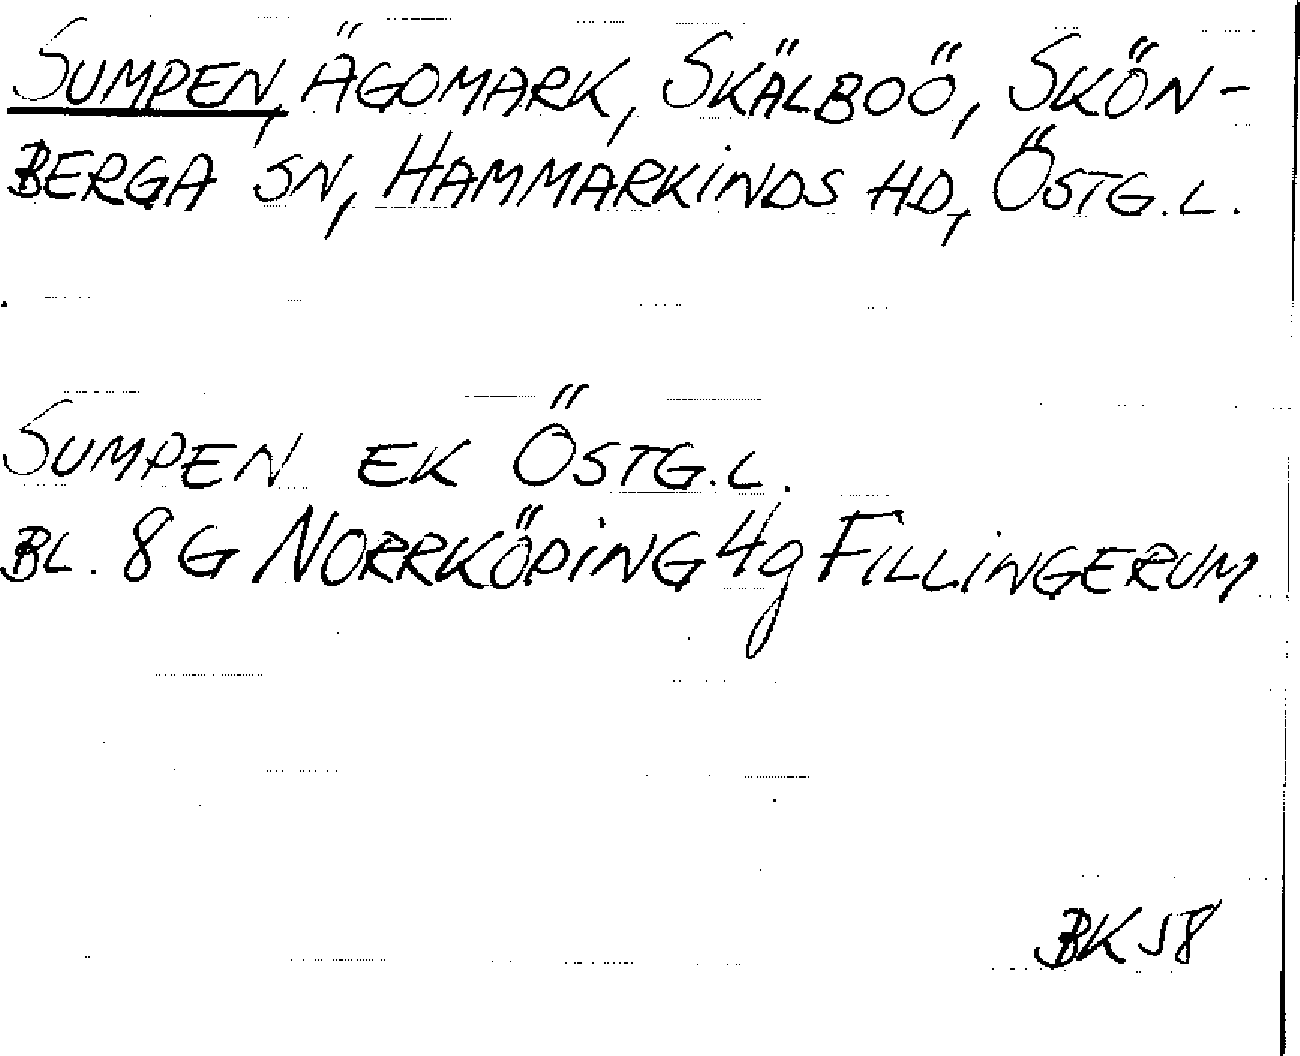 SUMPEN, ÄGOMARK, SKÄLBOÖ, SKÖN-
BERGA SN, HAMMARKINDS HD, ÖSTG.L.
SUMPEN EK ÖSTG.L.
BL. 8G NORRKÖPING 4g FILLINGERUM
BK 58